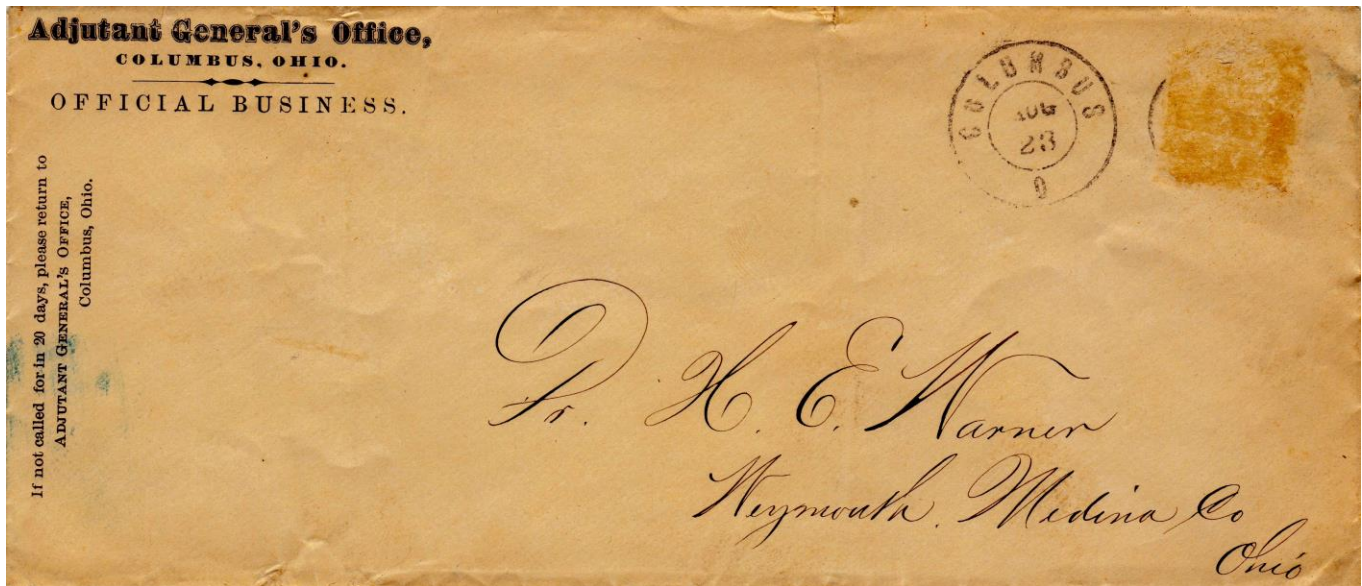 Adjutant General's Office,
COLUMBUS, OHIO.
OFFICIAL BUSINESS.
If not called for in 20 days, please return to
ADJUTANT GENERAL'S OFFICE,
Columbus, Ohio.
COLUMBUS
AUG
23
O
Dr. H. E. Warner
Weymouth. Medina Co
Ohio